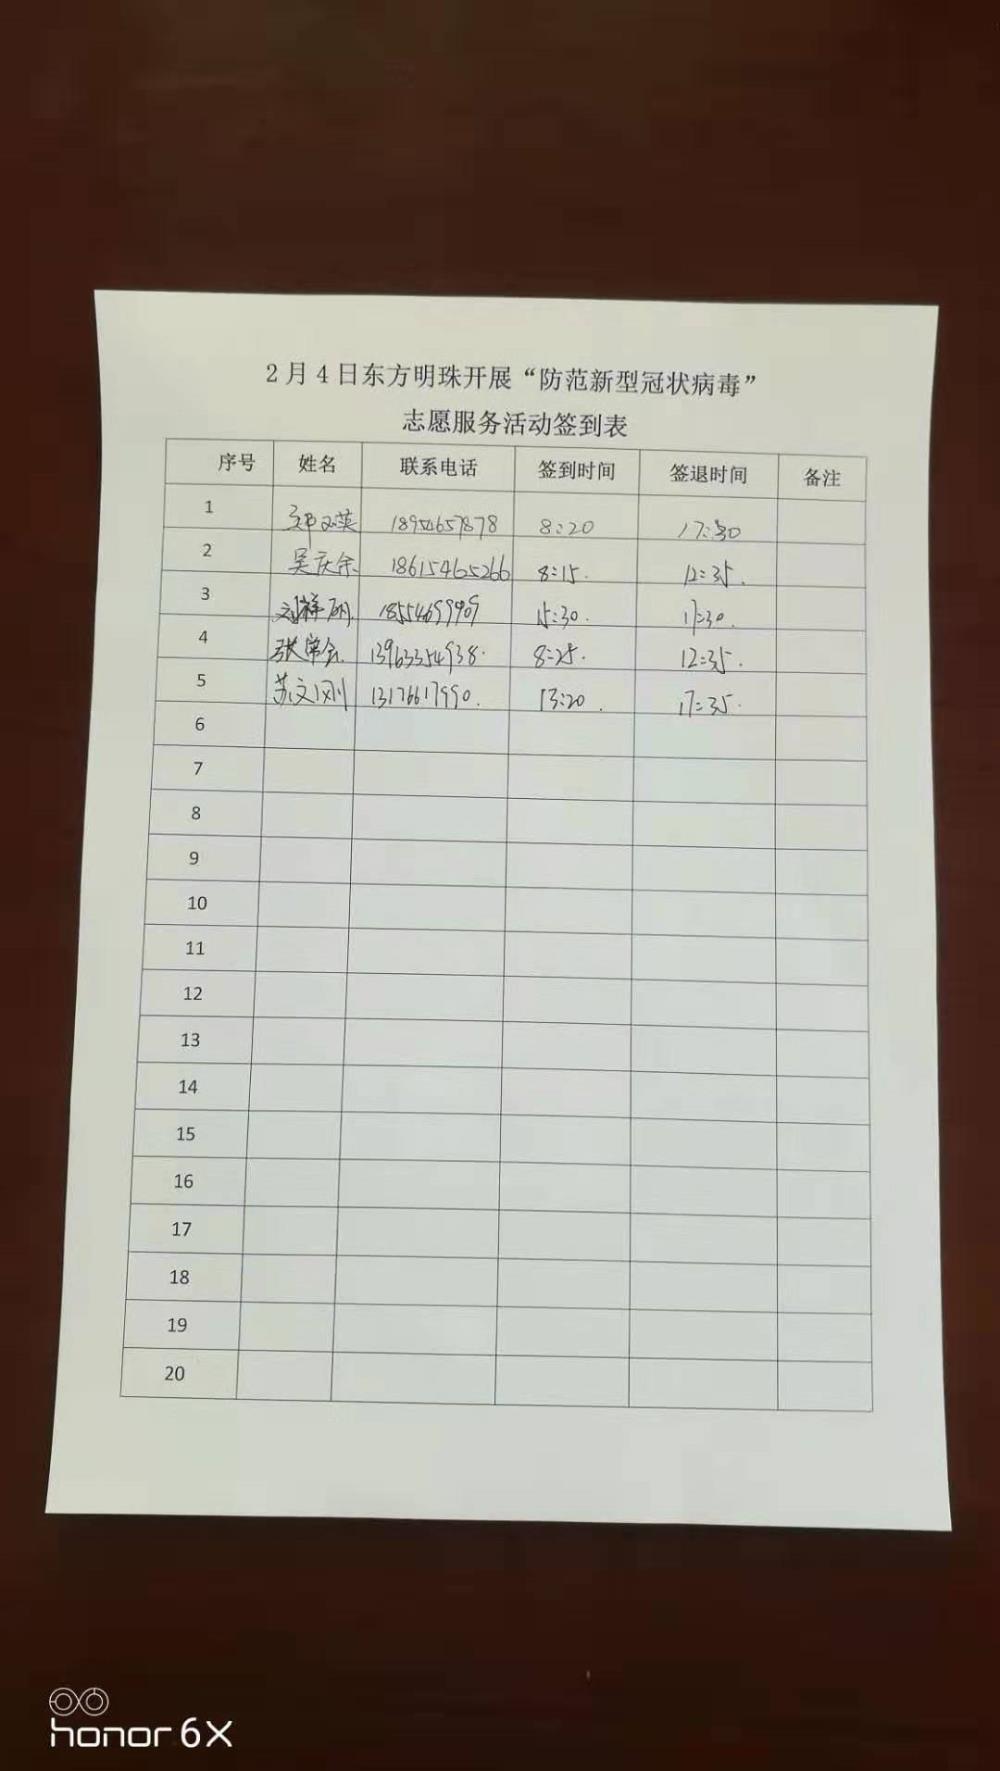 2月4日东方明珠开展“防范新型冠状病毒”
志愿服务活动签到表
序号 姓名 联系电话 签到时间 签退时间 备注
1 18954657878 8:20 17:30
2 吴庆余 18615465266 8:15. 12:35.
3 刘祥明. 18554699909 15:30. 17:30.
4 张常会. 13963354938. 8:25. 12:35.
5 苏文刚 13176617990. 13:20. 17:35.
6
7
8
9
10
11
12
13
14
15
16
17
18
19
20
honor 6X